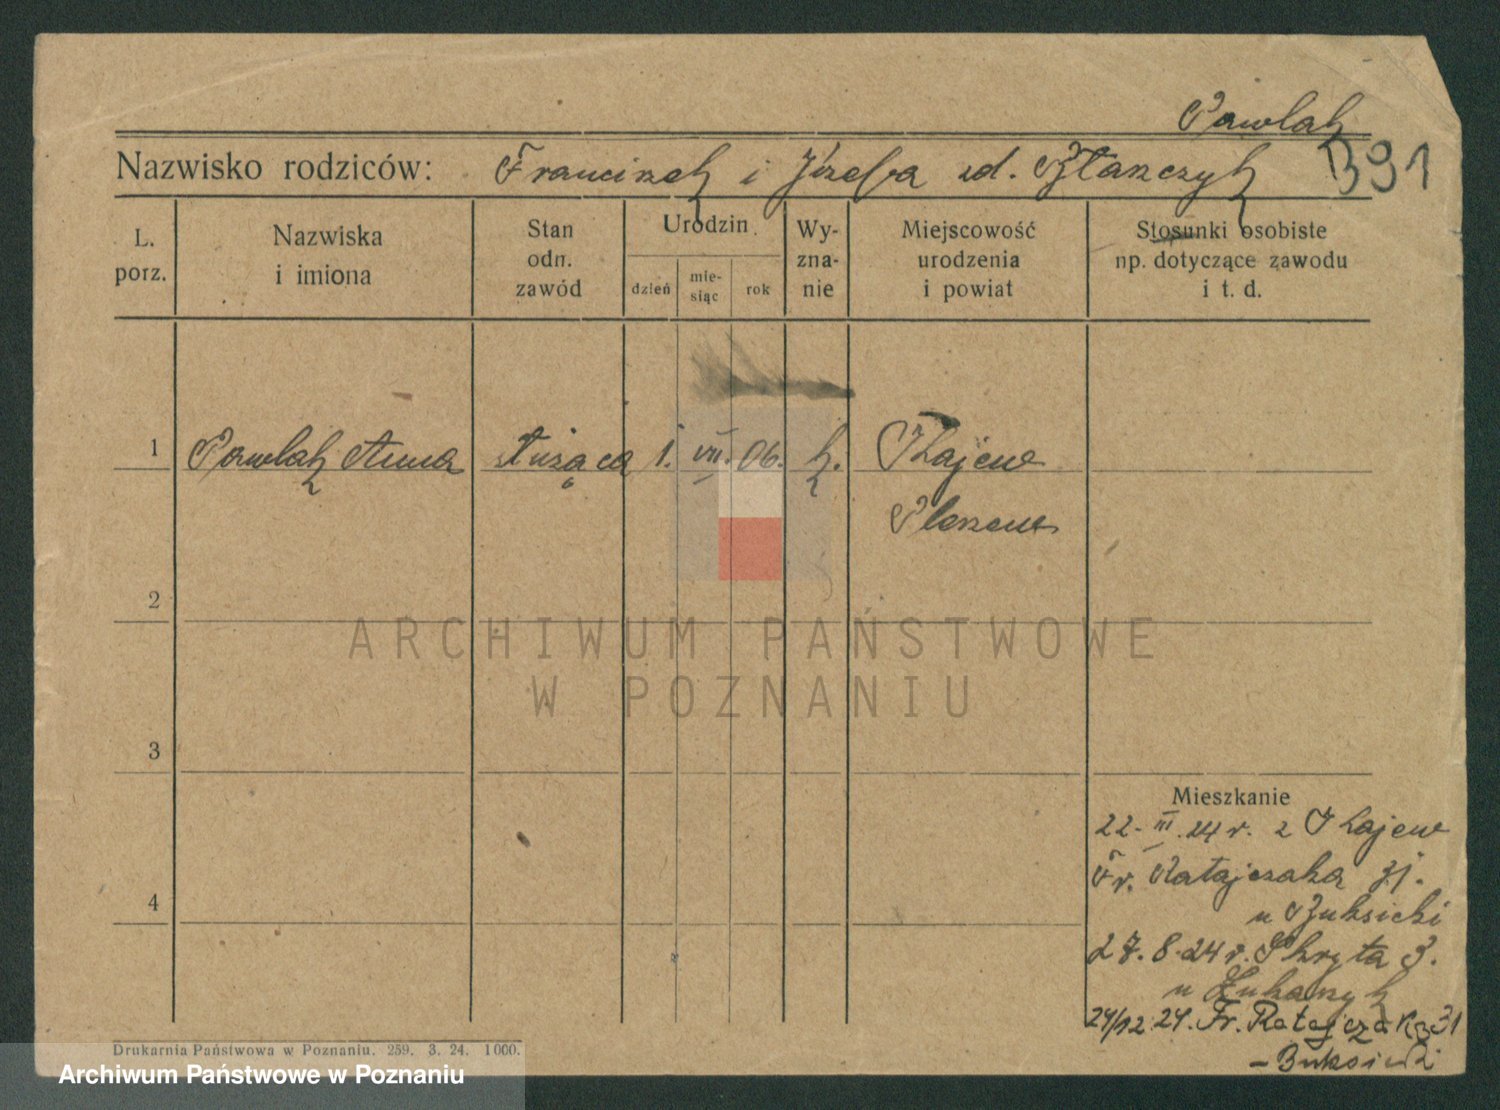 Pawlak
Nazwisko rodziców: Franciszek i Józefa zd.
B91
L. porz.
Nazwiska i imiona
Stan odn. zawód
Urodzin
dzień
mie-
siąc
rok
Wy-
zna-
nie
Miejscowość urodzenia i powiat
Stosunki osobiste
np. dotyczące zawodu
i t. d.
1 Pawlak Anna służąca 1. VII. 06. k.
2
3
4
Mieszkanie
22. III. 24 r. z
Fr. Ratajczaka 31.
u
27. 8. 24 r. Skryta 3.
u
24/12 24. Fr. Ratajczaka 31
ARCHIWUM PAŃSTWOWE
W POZNANIU
Drukarnia Państwowa w Poznaniu. 259. 3. 24. 1000.
Archiwum Państwowe w Poznaniu